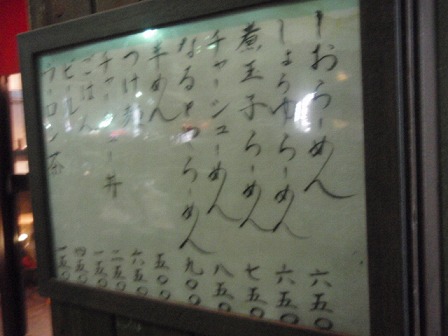 しおらーめん 六五〇
しょうゆらーめん 六五〇
煮玉子らーめん 七五〇
チャーシューめん 八五〇
なるとらーめん 九〇〇
半めん 五〇〇
つけ麺 六五〇
チャーシュー丼 二五〇
ごはん 一五〇
ビール 四五〇
ウーロン茶 一五〇